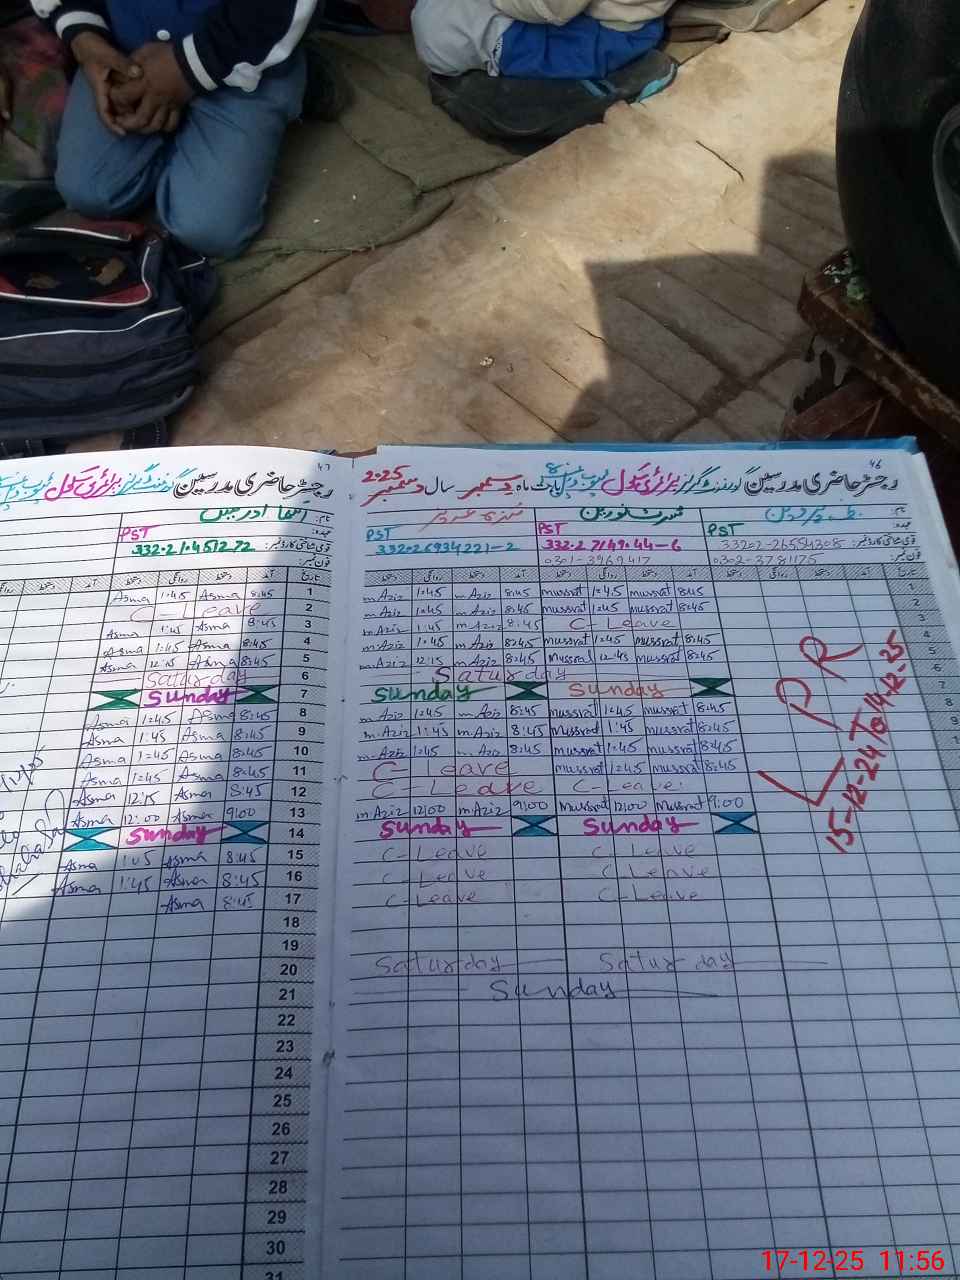 ۴۶
رجسٹر حاضری مدرسین گورنمنٹ گرلز پرائمری سکول بابت ماہ دسمبر سال دسمبر 2025
نام:
عہدہ:
PST PST
قومی شناختی کارڈ نمبر: 33202-26554308 332.27149.44-6 332026934221-2
فون نمبر: 0302-3781175 0301-3969417
تاریخ آمد دستخط روانگی دستخط آمد دستخط روانگی دستخط آمد دستخط روانگی دستخط
m Aziz 1:45 m Aziz 8:45 mussrat 1:45 mussrat 8:45 1
m Aziz 1:45 m Aziz 8:45 mussrat 1:45 mussrat 8:45 2
m Aziz 1:45 m Aziz 8:45 C-Leave 3
m Aziz 1:45 m Aziz 8:45 mussrat 1:45 mussrat 8:45 4
m Aziz 12:15 m Aziz 8:45 Mussrat 12:45 mussrat 8:45 5
Saturday 6
Sunday Sunday 7
m Aziz 1:45 m Aziz 8:45 mussrat 1:45 mussrat 8:45 8
m Aziz 1:45 m Aziz 8:45 mussrat 1:45 mussrat 8:45 9
m Aziz 1:45 m Aziz 8:45 mussrat 1:45 mussrat 8:45
C-Leave mussrat 1:45 mussrat 8:45
C-Leave C-Leave
m Aziz 12:00 m Aziz 9:00 Mussrat 12:00 Mussrat 9:00
Sunday Sunday
C-Leave C-Leave
C-Leave C-Leave
C-Leave C-Leave
Saturday Saturday
Sunday
LPR
15-12-24 To 14-12-25
۴۷
رجسٹر حاضری مدرسین گورنمنٹ گرلز پرائمری سکول
نام: اسما ادریس
عہدہ: PST
قومی شناختی کارڈ نمبر: 332.21.451272
فون نمبر:
تاریخ آمد دستخط روانگی دستخط آمد دستخط
Asma 1:45 Asma 8:45 1
C-Leave 2
Asma 1:45 Asma 8:45 3
Asma 1:45 Asma 8:45 4
Asma 12:15 Asma 8:45 5
Saturday 6
Sunday 7
Asma 1:45 Asma 8:45 8
Asma 1:45 Asma 8:45 9
Asma 1:45 Asma 8:45 10
Asma 1:45 Asma 8:45 11
Asma 12:15 Asma 8:45 12
Asma 12:00 Asma 9:00 13
Sunday 14
Asma 1:05 Asma 8:45 15
Asma 1:45 Asma 8:45 16
Asma 8:45 17
18
19
20
21
22
23
24
25
26
27
28
29
30
31
17-12-25 11:56